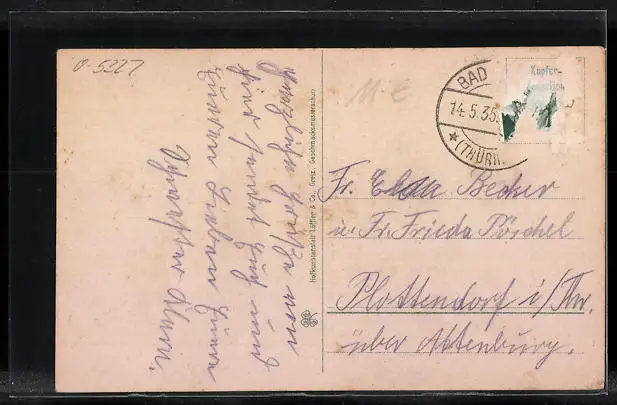 0-5227
Herzliche Grüße von
hier sendet Euch und
Euren Lieben Eure
Hofkunstanstalt Löffler & Co., Greiz. Geschmacksmusterschutz
M-E
BAD
14.5.35.
(THÜRI
Kupfer-
Fr. Elda Becker
u. Fr. Frieda Pörschel
Plottendorf i/Thr.
über Altenburg.